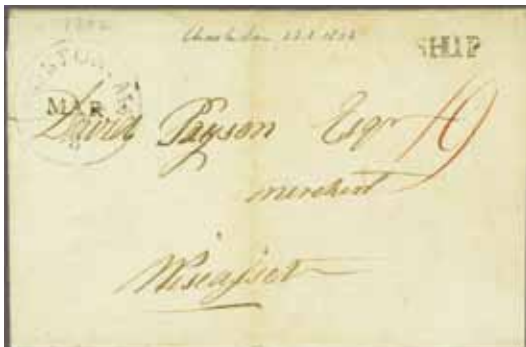 SHIP
MAR
David Payson Esqr 19
merchant
Wiscasset